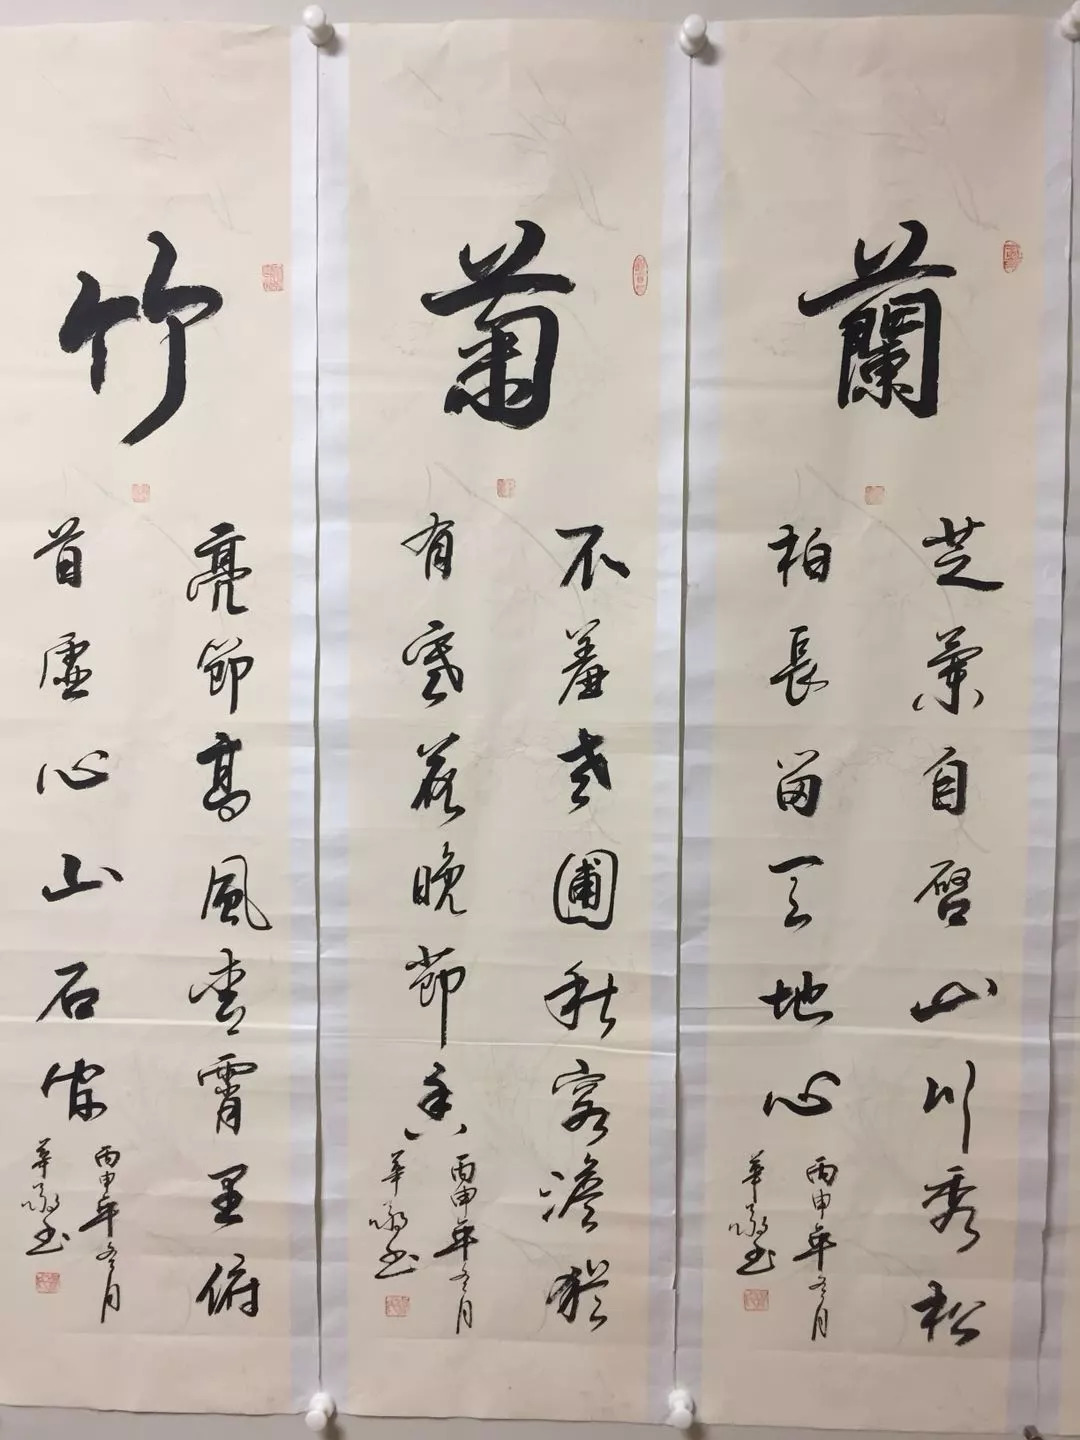 蘭
芝蘭自啓山川秀松
柏長留天地心
丙申年冬月
華敬书
菊
不羞老圃秋容澹猶
有寒花晚節香
丙申年冬月
華敬书
竹
亮節高風雲霄里俯
首虛心山石傍
丙申年冬月
華敬书